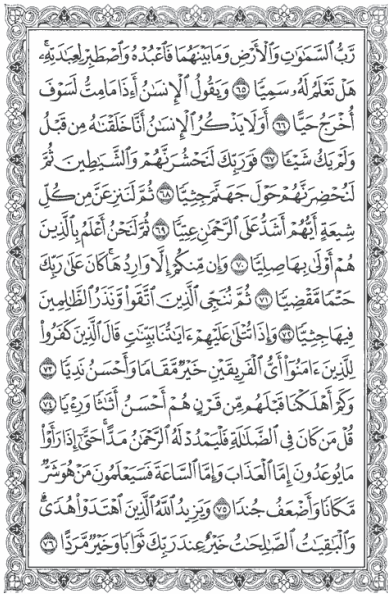 رَّبُّ السَّمَٰوَٰتِ وَالْأَرْضِ وَمَا بَيْنَهُمَا فَاعْبُدْهُ وَاصْطَبِرْ لِعِبَٰدَتِهِۦ ۚ
هَلْ تَعْلَمُ لَهُۥ سَمِيًّا ﴿٦٥﴾ وَيَقُولُ الْإِنسَٰنُ أَءِذَا مَا مِتُّ لَسَوْفَ
أُخْرَجُ حَيًّا ﴿٦٦﴾ أَوَلَا يَذْكُرُ الْإِنسَٰنُ أَنَّا خَلَقْنَٰهُ مِن قَبْلُ
وَلَمْ يَكُ شَيْـًٔا ﴿٦٧﴾ فَوَرَبِّكَ لَنَحْشُرَنَّهُمْ وَالشَّيَٰطِينَ ثُمَّ
لَنُحْضِرَنَّهُمْ حَوْلَ جَهَنَّمَ جِثِيًّا ﴿٦٨﴾ ثُمَّ لَنَنزِعَنَّ مِن كُلِّ
شِيعَةٍ أَيُّهُمْ أَشَدُّ عَلَى الرَّحْمَٰنِ عِتِيًّا ﴿٦٩﴾ ثُمَّ لَنَحْنُ أَعْلَمُ بِالَّذِينَ
هُمْ أَوْلَىٰ بِهَا صِلِيًّا ﴿٧٠﴾ وَإِن مِّنكُمْ إِلَّا وَارِدُهَا ۚ كَانَ عَلَىٰ رَبِّكَ
حَتْمًا مَّقْضِيًّا ﴿٧١﴾ ثُمَّ نُنَجِّى الَّذِينَ اتَّقَوا۟ وَّنَذَرُ الظَّٰلِمِينَ
فِيهَا جِثِيًّا ﴿٧٢﴾ وَإِذَا تُتْلَىٰ عَلَيْهِمْ ءَايَٰتُنَا بَيِّنَٰتٍ قَالَ الَّذِينَ كَفَرُوا۟
لِلَّذِينَ ءَامَنُوٓا۟ أَىُّ الْفَرِيقَيْنِ خَيْرٌ مَّقَامًا وَأَحْسَنُ نَدِيًّا ﴿٧٣﴾
وَكَمْ أَهْلَكْنَا قَبْلَهُم مِّن قَرْنٍ هُمْ أَحْسَنُ أَثَٰثًا وَرِءْيًا ﴿٧٤﴾
قُلْ مَن كَانَ فِى الضَّلَٰلَةِ فَلْيَمْدُدْ لَهُ الرَّحْمَٰنُ مَدًّا ۚ حَتَّىٰٓ إِذَا رَأَوْا۟
مَا يُوعَدُونَ إِمَّا الْعَذَابَ وَإِمَّا السَّاعَةَ فَسَيَعْلَمُونَ مَنْ هُوَ شَرٌّ
مَّكَانًا وَأَضْعَفُ جُندًا ﴿٧٥﴾ وَيَزِيدُ اللَّهُ الَّذِينَ اهْتَدَوْا۟ هُدًى ۗ
وَالْبَٰقِيَٰتُ الصَّٰلِحَٰتُ خَيْرٌ عِندَ رَبِّكَ ثَوَابًا وَخَيْرٌ مَّرَدًّا ﴿٧٦﴾